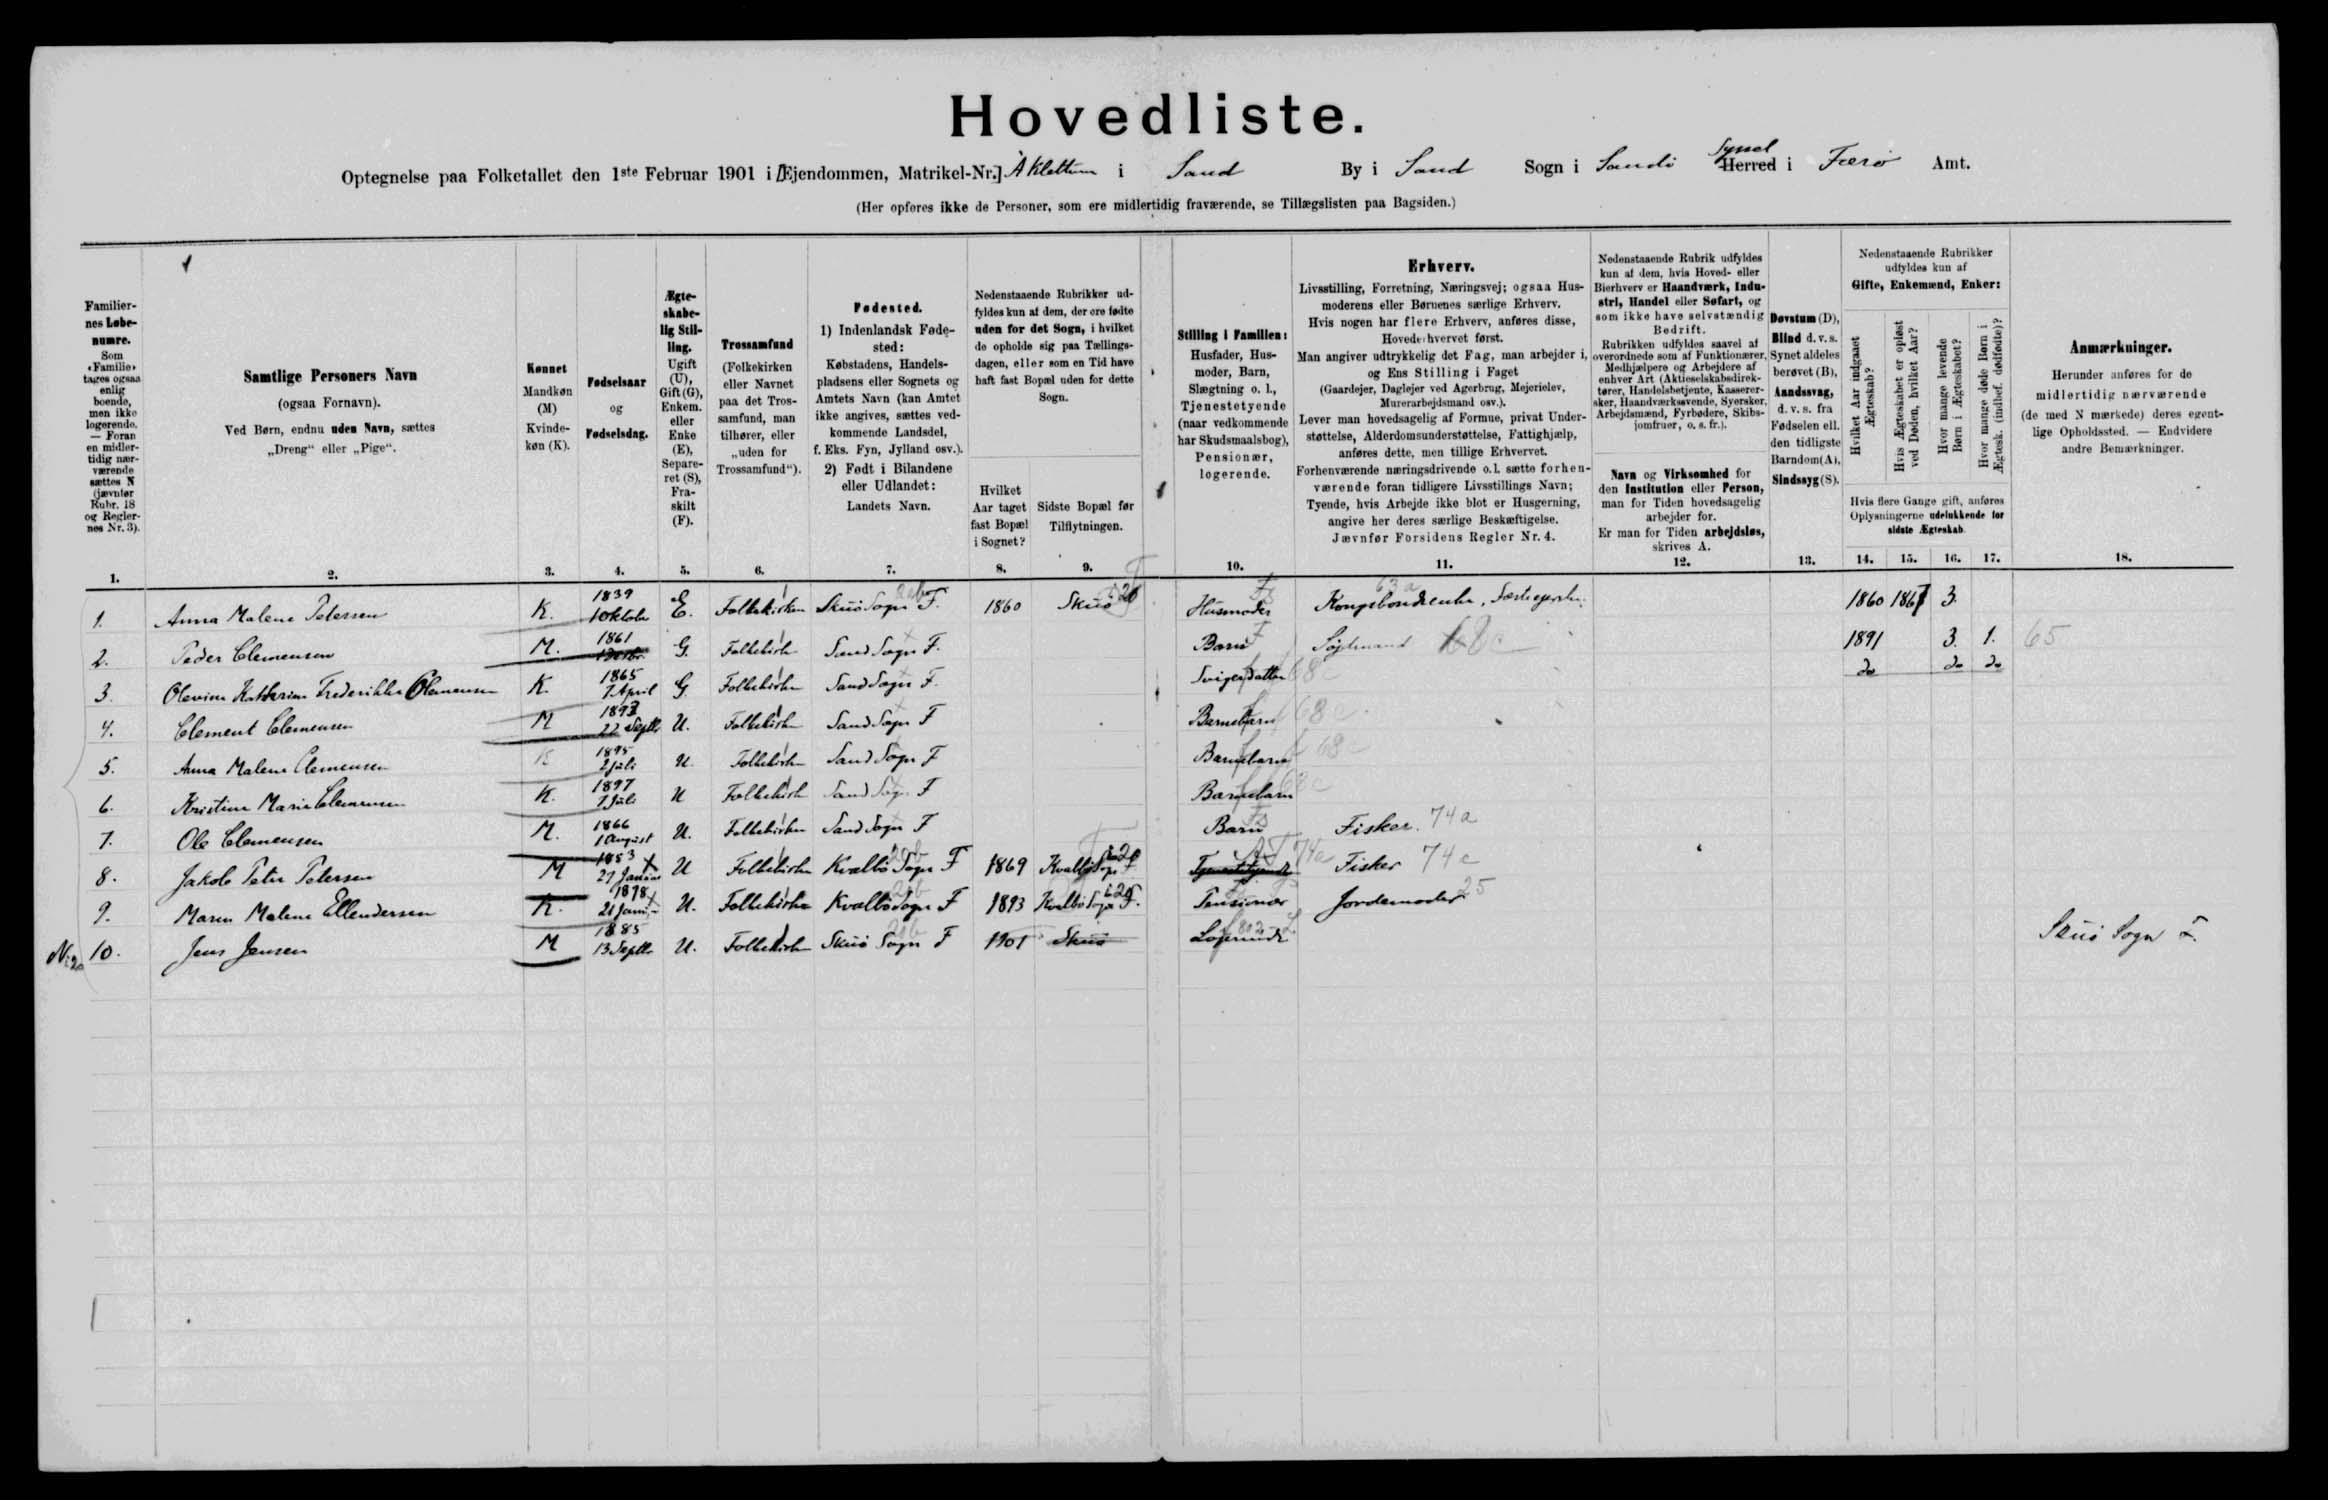 Hovedliste.
Optegnelse paa Folketallet den 1ste Februar 1901 i [Ejendommen, Matrikel-Nr.] Á Klettum i Sand By i Sand Sogn i Sandö Syssel Herred i Færö Amt.
(Her opføres ikke de Personer, som ere midlertidig fraværende, se Tillægslisten paa Bagsiden.)
Familier-
nes Løbe-
numre.
Som
«Familie»
tages ogsaa
enlig
boende,
men ikke
logerende.
— Foran
en midler-
tidig nær-
værende
sættes N
(jævnfør
Rubr. 18
og Regler-
nes Nr. 3).
1.
Samtlige Personers Navn
(ogsaa Fornavn).
Ved Børn, endnu uden Navn, sættes
„Dreng“ eller „Pige“.
2.
Kønnet
Mandkøn
(M)
Kvinde-
køn (K).
3.
Fødselsaar
og
Fødselsdag.
4.
Ægte-
skabe-
lig Stil-
ling.
Ugift
(U),
Gift (G),
Enkem.
eller
Enke
(E),
Separe-
ret (S),
Fra-
skilt
(F).
5.
Trossamfund
(Folkekirken
eller Navnet
paa det Tros-
samfund, man
tilhører, eller
„uden for
Trossamfund“).
6.
Fødested.
1) Indenlandsk Føde-
sted:
Købstadens, Handels-
pladsens eller Sognets og
Amtets Navn (kan Amtet
ikke angives, sættes ved-
kommende Landsdel,
f. Eks. Fyn, Jylland osv.).
2) Født i Bilandene
eller Udlandet:
Landets Navn.
7.
Nedenstaaende Rubrikker ud-
fyldes kun af dem, der ere fødte
uden for det Sogn, i hvilket
de opholde sig paa Tællings-
dagen, eller som en Tid have
haft fast Bopæl uden for dette
Sogn.
Hvilket
Aar taget
fast Bopæl
i Sognet?
8.
Sidste Bopæl før
Tilflytningen.
9.
Stilling i Familien:
Husfader, Hus-
moder, Barn,
Slægtning o. l.,
Tjenestetyende
(naar vedkommende
har Skudsmaalsbog),
Pensionær,
logerende.
10.
Erhverv.
Livsstilling, Forretning, Næringsvej; ogsaa Hus-
moderens eller Børnenes særlige Erhverv.
Hvis nogen har flere Erhverv, anføres disse,
Hovederhvervet først.
Man angiver udtrykkelig det Fag, man arbejder i,
og Ens Stilling i Faget
(Gaardejer, Daglejer ved Agerbrug, Mejerielev,
Murerarbejdsmand osv.).
Lever man hovedsagelig af Formue, privat Under-
støttelse, Alderdomsunderstøttelse, Fattighjælp,
anføres dette, men tillige Erhvervet.
Forhenværende næringsdrivende o. l. sætte forhen-
værende foran tidligere Livsstillings Navn;
Tyende, hvis Arbejde ikke blot er Husgerning,
angive her deres særlige Beskæftigelse.
Jævnfør Forsidens Regler Nr. 4.
11.
Nedenstaaende Rubrik udfyldes
kun af dem, hvis Hoved- eller
Bierhverv er Haandværk, Indu-
stri, Handel eller Søfart, og
som ikke have selvstændig
Bedrift.
Rubrikken udfyldes saavel af
overordnede som af Funktionærer,
Medhjælpere og Arbejdere af
enhver Art (Aktieselskabsdirek-
tører, Handelsbetjente, Kasserer-
sker, Haandværkssvende, Syersker,
Arbejdsmænd, Fyrbødere, Skibs-
jomfruer, o. s. fr.).
Navn og Virksomhed for
den Institution eller Person,
man for Tiden hovedsagelig
arbejder for.
Er man for Tiden arbejdsløs,
skrives A.
12.
Døvstum (D),
Blind d. v. s.
Synet aldeles
berøvet (B),
Aandssvag,
d. v. s. fra
Fødselen ell.
den tidligste
Barndom (A),
Sindssyg (S).
13.
Nedenstaaende Rubrikker
udfyldes kun af
Gifte, Enkemænd, Enker:
Hvilket Aar indgaaet
Ægteskab?
Hvis Ægteskabet er opløst
ved Døden, hvilket Aar?
Hvor mange levende
Børn i Ægteskabet?
Hvor mange døde Børn i
Ægtesk. (indbef. dødfødte)?
Hvis flere Gange gift, anføres
Oplysningerne udelukkende for
sidste Ægteskab.
14. 15. 16. 17.
Anmærkninger.
Herunder anføres for de
midlertidig nærværende
(de med N mærkede) deres egent-
lige Opholdssted. — Endvidere
andre Bemærkninger.
18.
1. Anna Malene Petersen K. 1839 1 Oktobr E. Folkekirken Skuö Sogn F. 1860 Skuö Husmoder Kongsbondeenke, 63a 1860 1867 3.
2. Peder Clemensen M. 1861 G. Folkekirk Sand Sogn F. Barn 68c 1891 3. 1. 65
3. Olevine Kathrine Frederikke Clemensen K. 1865 7 April G. Folkekirken Sand Sogn F. Svigerdatter 68c do do do
4. Clement Clemensen M 1893 22 Septbr U. Folkekirken Sand Sogn F Barnebarn 68c
5. Anna Malene Clemensen K 1895 2 Juli U. Folkekirken Sand Sogn F Barnebarn 68c
6. Kristine Marie Clemensen K. 1897 7 Juli U Folkekirk Sand Sogn F Barnebarn 68c
7. Ole Clemensen M. 1866 1 August U. Folkekirken Sand Sogn F Barn Fisker. 74a
8. Jakob Peter Petersen M 1853 27 Januar U Folkekirken Kvalbö Sogn F 1869 Kvalbö Sogn F Tjenestetyende Fisker 74c
9. Maren Malene Ellendersen K. 1878 21 U. Folkekirken Kvalbö Sogn F 1893 Kvalbö Sogn F. Pensionær Jordemoder 25
N 10. Jens Jensen M 1885 13 Septbr U. Folkekirken Skuö Sogn F 1901 Skuö Logerende Skuö Sogn F.